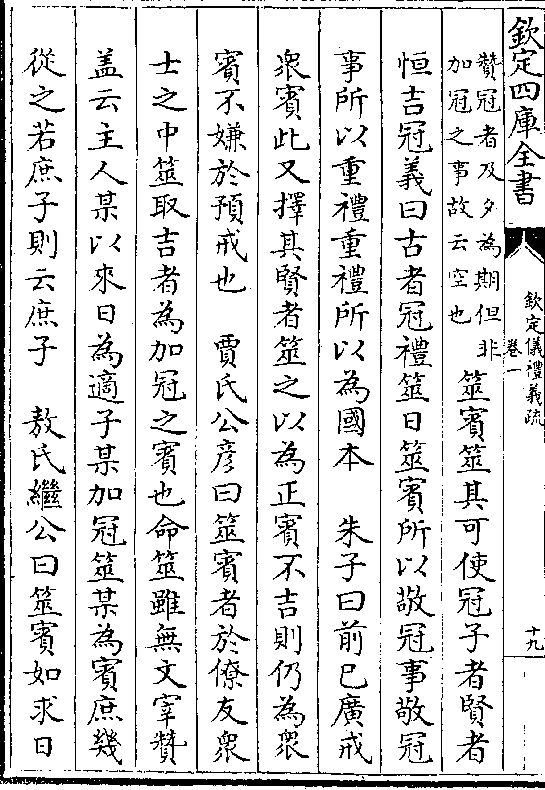 欽定四庫全書
欽定儀禮義疏
卷一
十九
贊冠者及夕為期但非
加冠之事故云空也
筮賓筮其可使冠子者賢者
恒吉冠義曰古者冠禮筮日筮賓所以敬冠事敬冠
事所以重禮重禮所以為國本　朱子曰前已廣戒
衆賓此又擇其賢者筮之以為正賓不吉則仍為衆
賓不嫌於預戒也　賈氏公彦曰筮賓者於僚友衆
士之中筮取吉者為加冠之賓也命筮雖無文宰贊
盖云主人某以來日為適子某加冠筮某為賓庶幾
從之若庶子則云庶子　敖氏繼公曰筮賓如求日